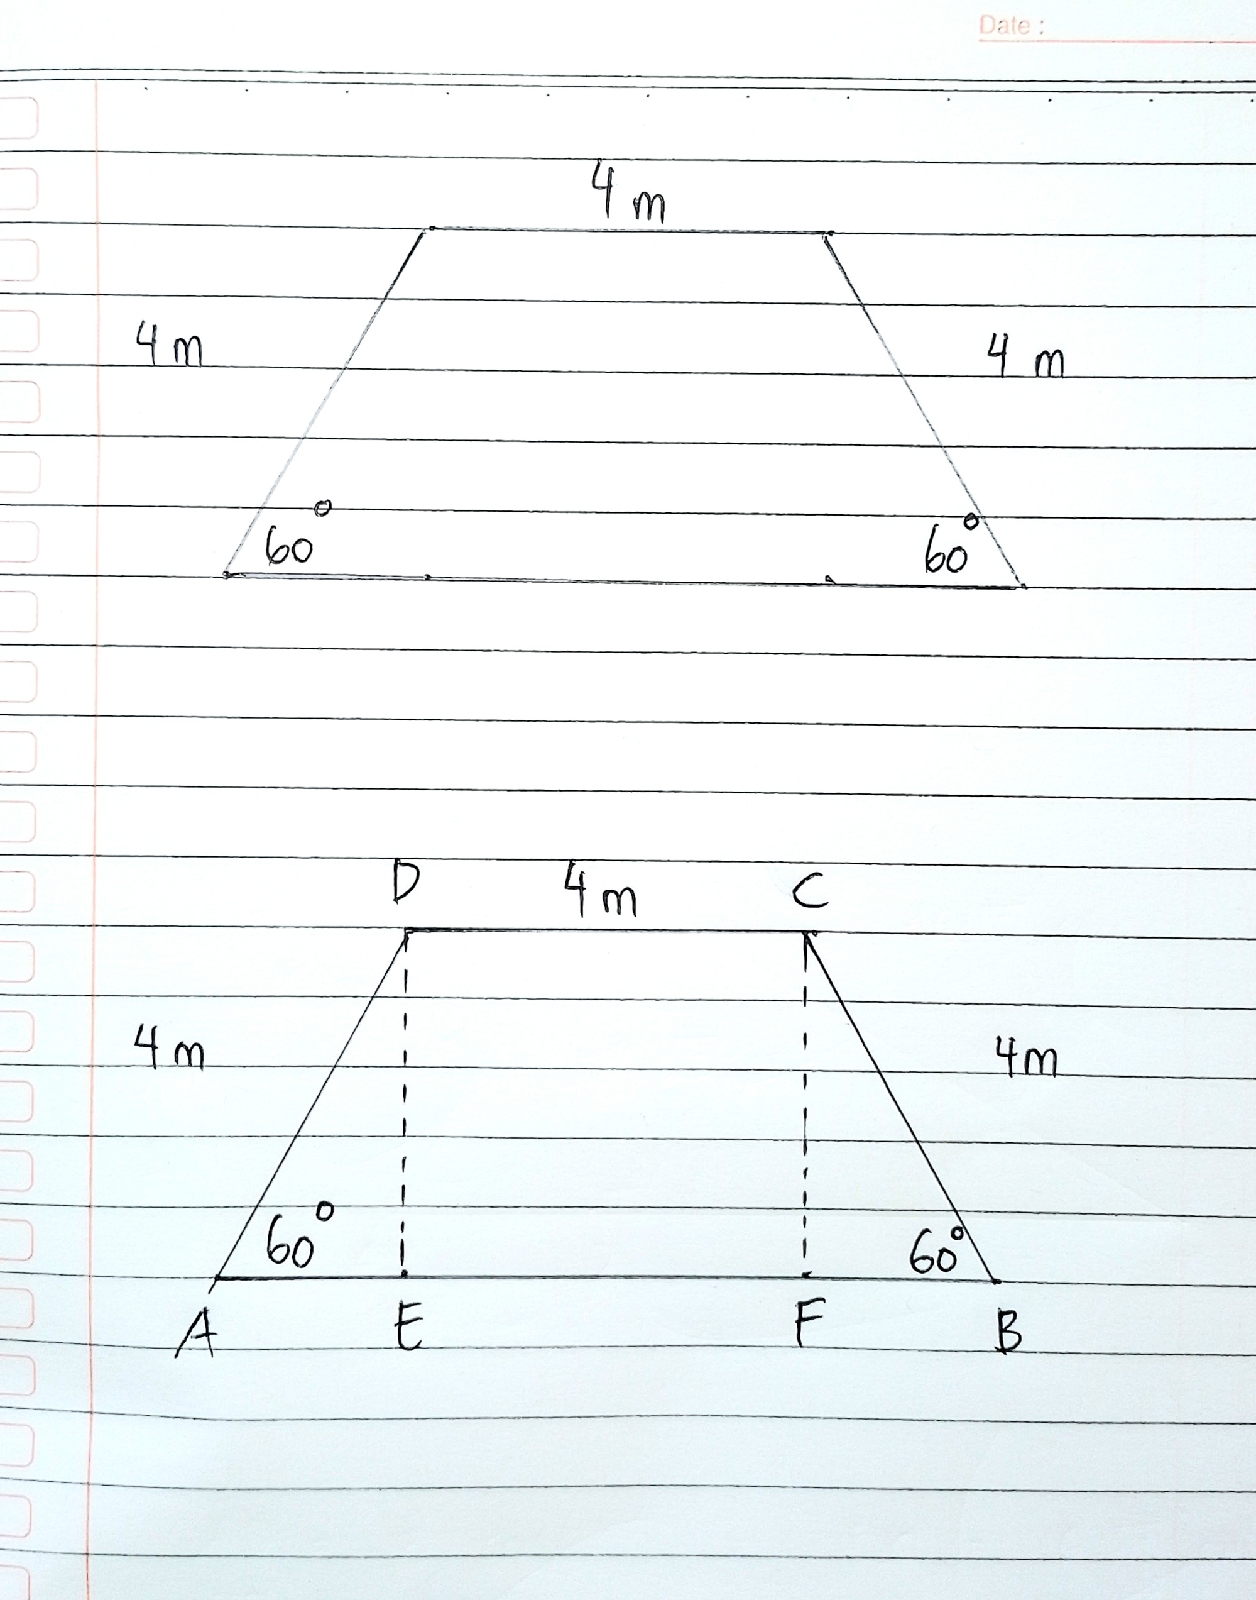 Date :
4 m
4 m
4 m
60°
60°
D
4 m
C
4 m
4 m
60°
60°
A
E
F
B